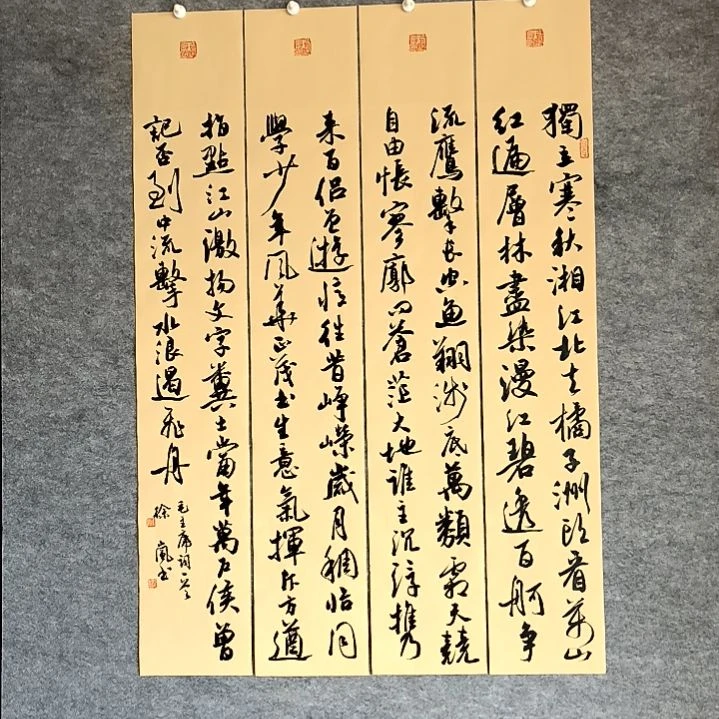 獨立寒秋湘江北去橘子洲頭看萬山
紅遍層林盡染漫江碧透百舸爭
流鷹擊長空魚翔淺底萬類霜天競
自由悵寥廓問蒼茫大地誰主沉浮攜
来百侣曾遊憶往昔崢嶸歲月稠恰同
學少年風華正茂書生意氣揮斥方遒
指點江山激揚文字糞土當年萬户侯曾
記否到中流擊水浪遏飛舟
毛主席詞一首
徐嵐書